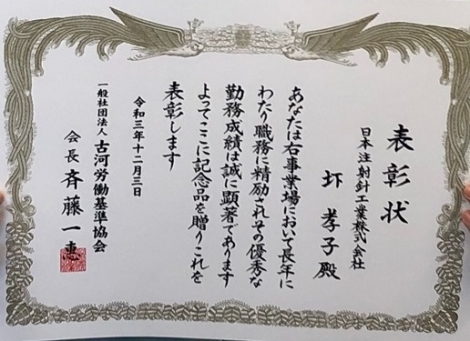 表彰状
日本注射針工業株式会社
圷孝子殿
あなたは右事業場において長年に
わたり職務に精励されその優秀な
勤務成績は誠に顕著であります
よってここに記念品を贈りこれを
表彰します
令和三年十二月三日
一般社団法人 古河労働基準協会
会長 斉藤一惠